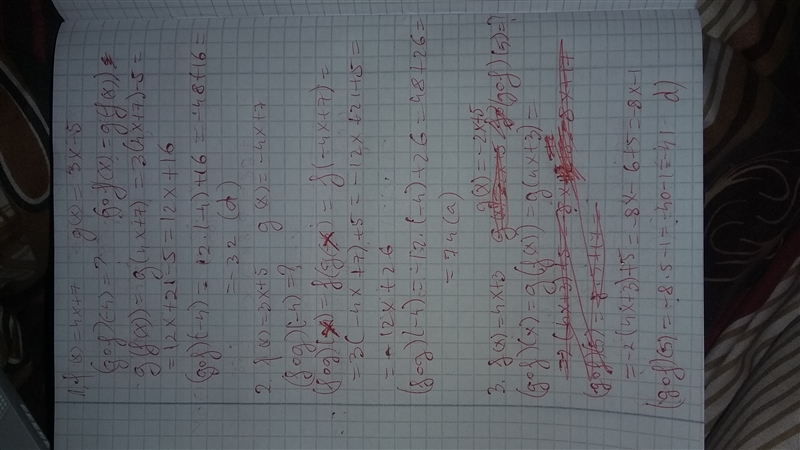 1. f(x)=4x+7 g(x)=3x-5
(gof)(-4)=? gof(x)=g(f(x))=
g(f(x))=g(4x+7)=3(4x+7)-5=
=12x+21-5=12x+16
(gof)(-4)=12·(-4)+16=-48+16=
=-32 (d)
2. f(x)=3x+5 g(x)=-4x+7
(fog)(-4)=?
(fog)(x)=f(g(x))=f(-4x+7)=
=3(-4x+7)+5=-12x+21+5=
=-12x+26
(fog)(-4)=-12·(-4)+26=48+26=
=74(a)
3. f(x)=4x+3 g(x)=-2x+5 (gof)(5)=?
(gof)(x)=g(f(x))=g(4x+3)=
=-2(4x+3)+5=-8x-6+5=-8x-1
(gof)(5)=-8·5-1=-40-1=-41 d)